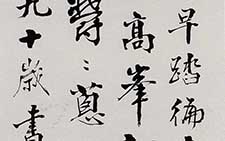 早踏徧
高峯
蔚〻蔥
九十歲書